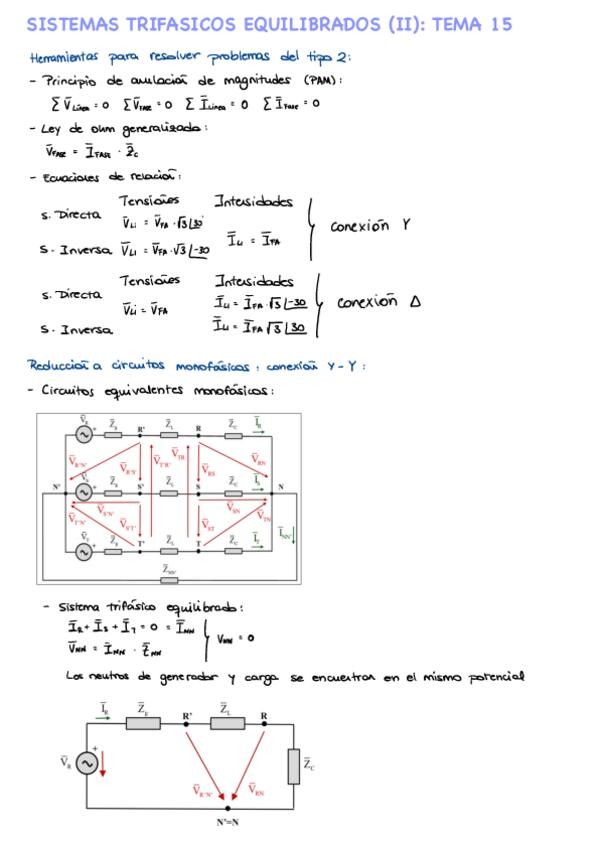 SISTEMAS TRIFASICOS EQUILIBRADOS (II): TEMA 15
Herramientas para resolver problemas del tipo 2:
- Principio de anulación de magnitudes (PAM):
Σ V̄Línea = 0 Σ V̄FASE = 0 Σ ĪLínea = 0 Σ ĪFase = 0
- Ley de ohm generalizada:
V̄FASE = ĪFASE · Z̄C
- Ecuaciones de relación:
Tensiones Intensidades
S. Directa V̄LI = V̄FA · √3|30
ĪLI = ĪFA conexión Y
S. Inversa V̄LI = V̄FA · √3|-30
Tensiones Intensidades
S. Directa ĪLI = ĪFA · √3|-30
V̄LI = V̄FA conexión Δ
S. Inversa ĪLI = ĪFA √3|30
Reducción a circuitos monofásicos, conexión Y-Y:
- Circuitos equivalentes monofásicos:
V̄R Z̄g R' Z̄L R Z̄C ĪR
V̄R'N' V̄R'S' V̄T'R' V̄TR V̄RS V̄RN
N' V̄S Z̄g S' Z̄L S Z̄C ĪS N
V̄T'N' V̄S'N' V̄S'T' V̄ST V̄SN V̄TN
V̄T Z̄g T' Z̄L T Z̄C ĪT ĪNN'
Z̄NN'
- Sistema trifásico equilibrado:
ĪR + ĪS + ĪT = 0 = ĪNN
VNN = 0
V̄NN = ĪNN · Z̄NN
Los neutros de generador y carga se encuentran en el mismo potencial
ĪR Z̄g R' Z̄L R
V̄R + Z̄C
V̄R'N' V̄RN
N'=N